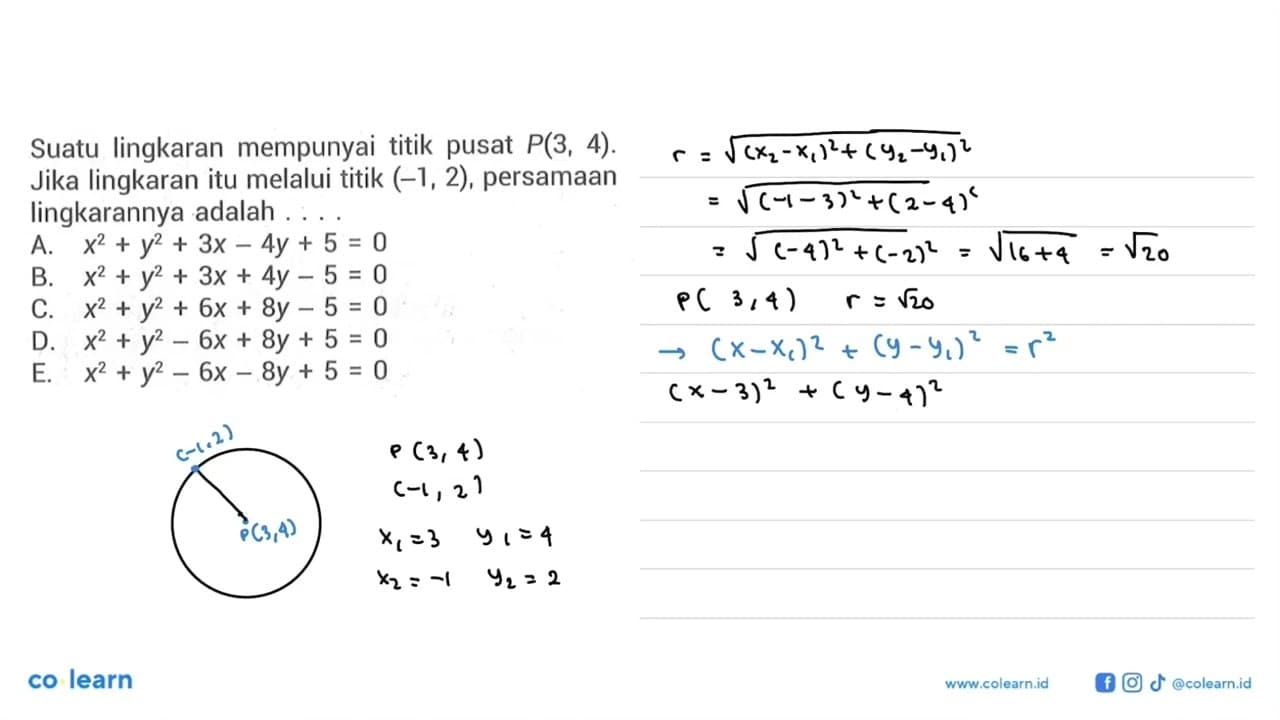 Suatu lingkaran mempunyai titik pusat P(3, 4).
Jika lingkaran itu melalui titik (–1, 2), persamaan
lingkarannya adalah . . . .
A. x² + y² + 3x – 4y + 5 = 0
B. x² + y² + 3x + 4y – 5 = 0
C. x² + y² + 6x + 8y – 5 = 0
D. x² + y² – 6x + 8y + 5 = 0
E. x² + y² – 6x – 8y + 5 = 0
(-1,2)
P(3,4)
P(3,4)
(-1,2)
x₁=3 y₁=4
x₂=-1 y₂=2
r = √(x₂-x₁)²+(y₂-y₁)²
= √(-1-3)²+(2-4)²
= √(-4)²+(-2)² = √16+4 = √20
P(3,4) r=√20
→ (x-x₁)² + (y-y₁)² = r²
(x-3)² + (y-4)²
co learn
www.colearn.id @colearn.id